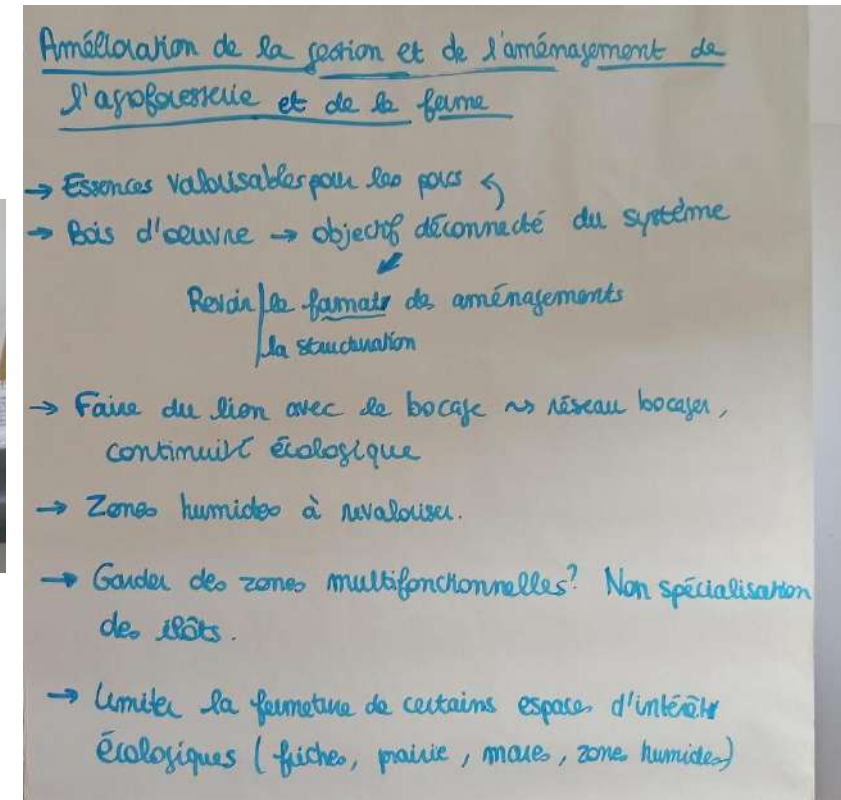 Amélioration de la gestion et de l'aménagement de
l'agroforesterie et de la ferme
→ Essences valorisables pour les porcs ↰
→ Bois d'oeuvre → objectif déconnecté du système
↙
Revoir | le format des aménagements
| la structuration
→ Faire du lien avec le bocage ~> réseau bocager,
continuité écologique
→ Zones humides à revaloriser.
→ Garder des zones multifonctionnelles? Non spécialisation
des ilôts.
→ Limiter la fermeture de certains espaces d'intérêts
écologiques (friches, prairie, mares, zones humides)